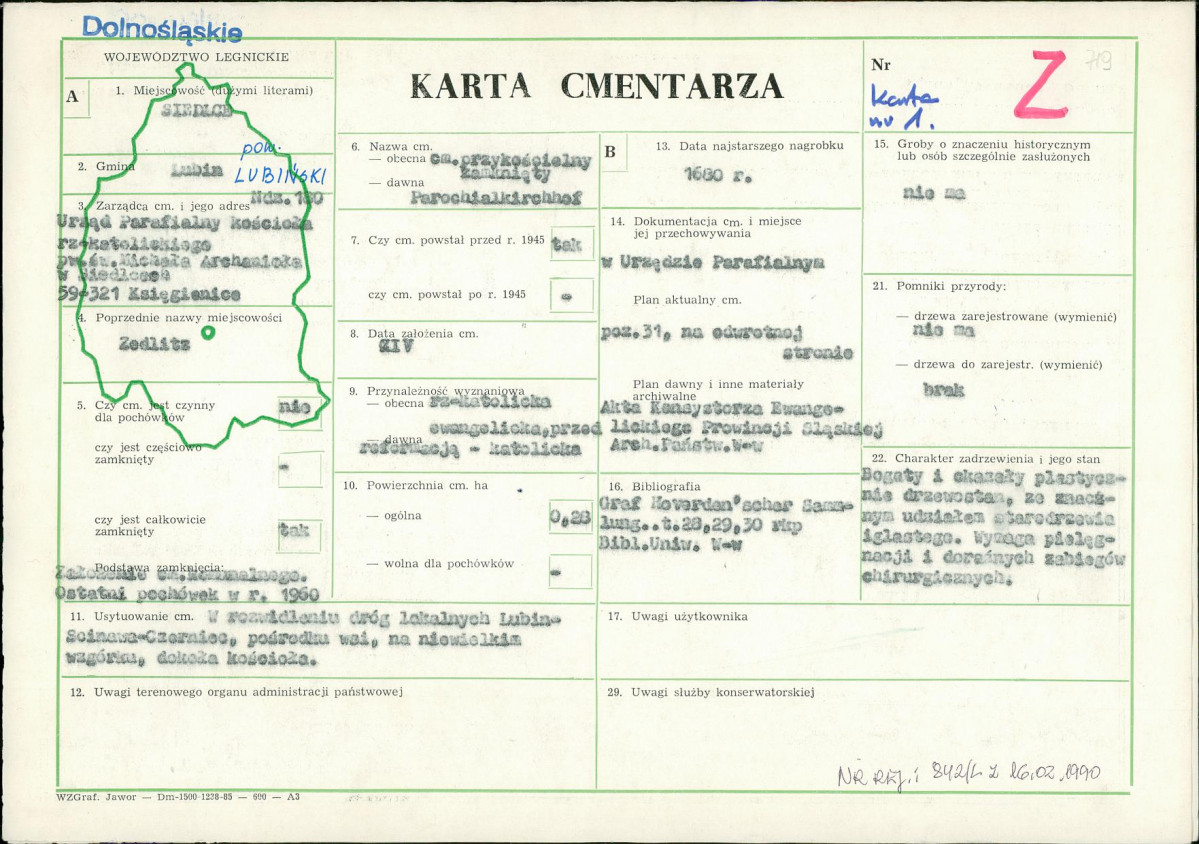 Dolnośląskie
WOJEWÓDZTWO LEGNICKIE
A
1. Miejscowość (dużymi literami)
SIEDLCE
pow.
LUBIŃSKI
2. Gmina Lubin
3. Zarządca cm. i jego adres Ndz. 180
Urząd Parafialny kościoła
rz-katolickiego
pw.św.Michała Archanioła
w Siedlcach
59-321 Księgienice
4. Poprzednie nazwy miejscowości
Zedlitz
5. Czy cm. jest czynny
dla pochówków
nie
czy jest częściowo
zamknięty
-
czy jest całkowicie
zamknięty
tak
Podstawa zamknięcia:
Założenie cm.komunalnego.
Ostatni pochówek w r. 1960
KARTA CMENTARZA
6. Nazwa cm.
— obecna cm.przykościelny
zamknięty
— dawna
Parochialkirchhof
7. Czy cm. powstał przed r. 1945 tak
czy cm. powstał po r. 1945 -
8. Data założenia cm.
XIV
9. Przynależność wyznaniowa
— obecna rz-katolicka
ewangelicka,przed
— dawna
reformacją - katolicka
10. Powierzchnia cm. ha
— ogólna 0,28
— wolna dla pochówków -
11. Usytuowanie cm. W rozwidleniu dróg lokalnych Lubin-
Scinawa-Czerniec, pośrodku wsi, na niewielkim
wzgórku, dokoła kościoła.
12. Uwagi terenowego organu administracji państwowej
B
13. Data najstarszego nagrobku
1680 r.
14. Dokumentacja cm. i miejsce
jej przechowywania
w Urzędzie Parafialnym
Plan aktualny cm.
poz.31, na odwrotnej
stronie
Plan dawny i inne materiały
archiwalne
Akta Konsystorza Ewange-
lickiego Prowincji Sląskiej
Arch.Państw.W-w
16. Bibliografia
Graf Hoverden'scher Samm-
lung..t.28,29,30 rkp
Bibl.Uniw. W-w
17. Uwagi użytkownika
29. Uwagi służby konserwatorskiej
NR REJ.: 842/L z 16.02.1990
Nr
Karta
nr 1.
Z
719
15. Groby o znaczeniu historycznym
lub osób szczególnie zasłużonych
nie ma
21. Pomniki przyrody:
— drzewa zarejestrowane (wymienić)
nie ma
— drzewa do zarejestr. (wymienić)
brak
22. Charakter zadrzewienia i jego stan
Bogaty i okazały plastycz-
nie drzewostan, ze znacz-
nym udziałem starodrzewia
iglastego. Wymaga pielęg-
nacji i doraźnych zabiegów
chirurgicznych.
WZGraf. Jawor — Dm-1500-1238-85 — 690 — A3